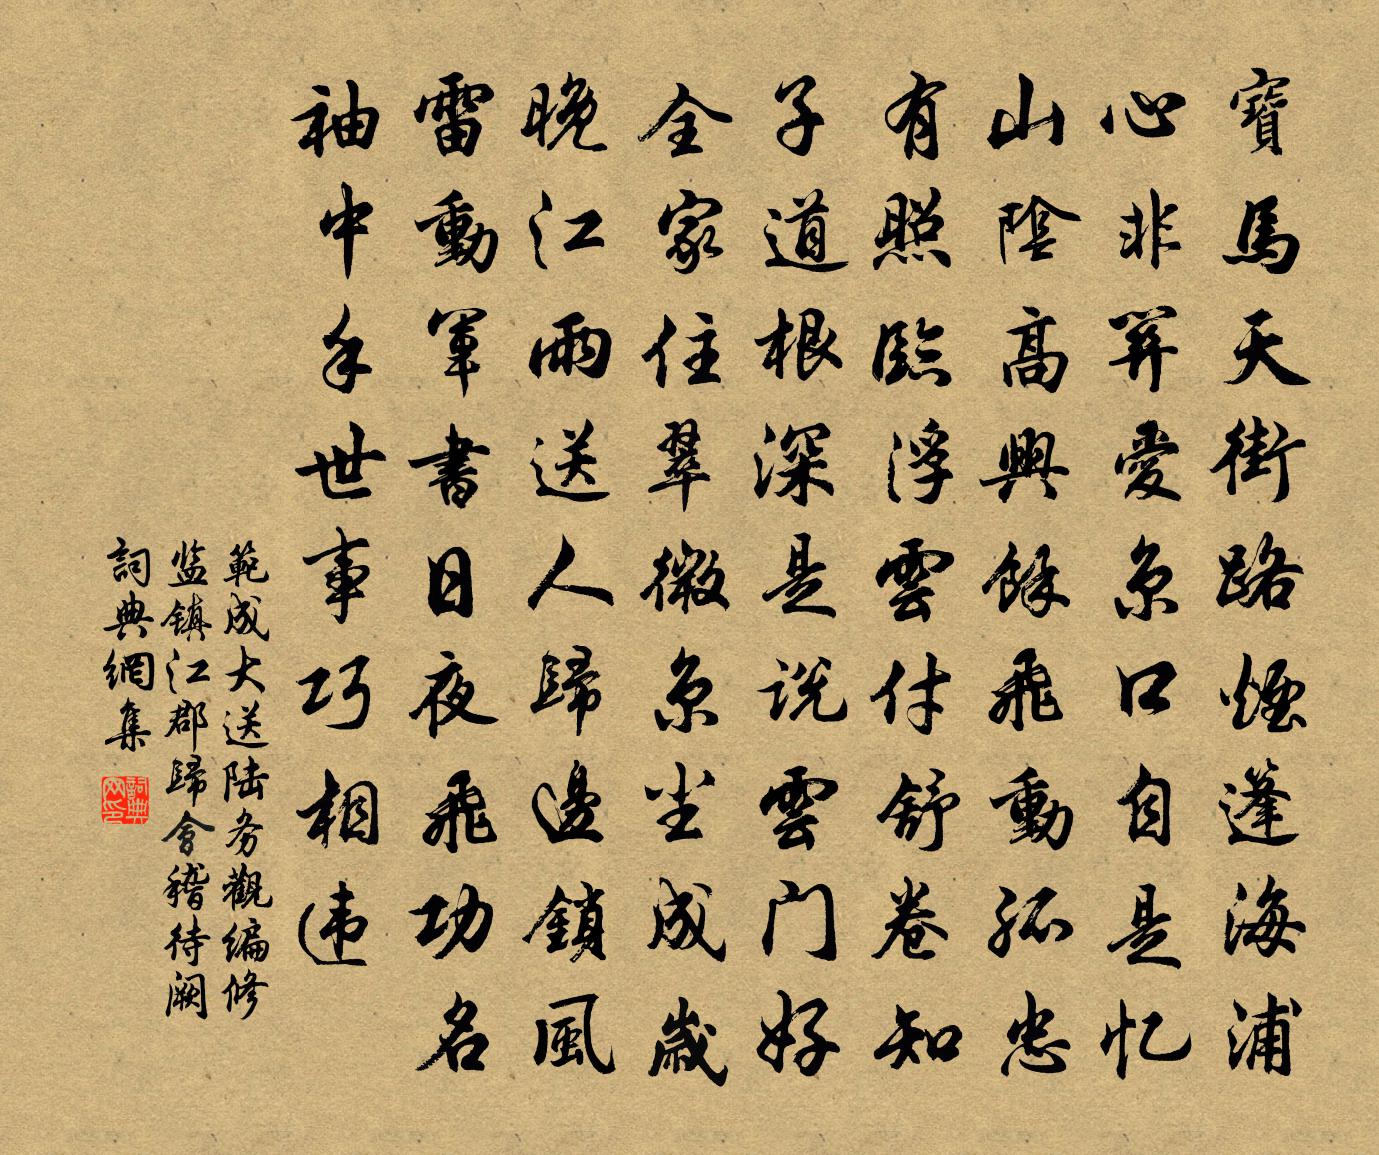 寶馬天街路煙蓬海浦
心非關愛京口自是忆
山陰高興餘飛動孤忠
有照臨浮雲付舒卷知
子道根深是说雲门好
全家住翠微京尘成歲
晚江雨送人歸邊鎖風
雷動軍書日夜飛功名
袖中手世事巧相违
範成大送陆务觀编修
监镇江郡歸會稽待阙
詞典網集
詞典网印